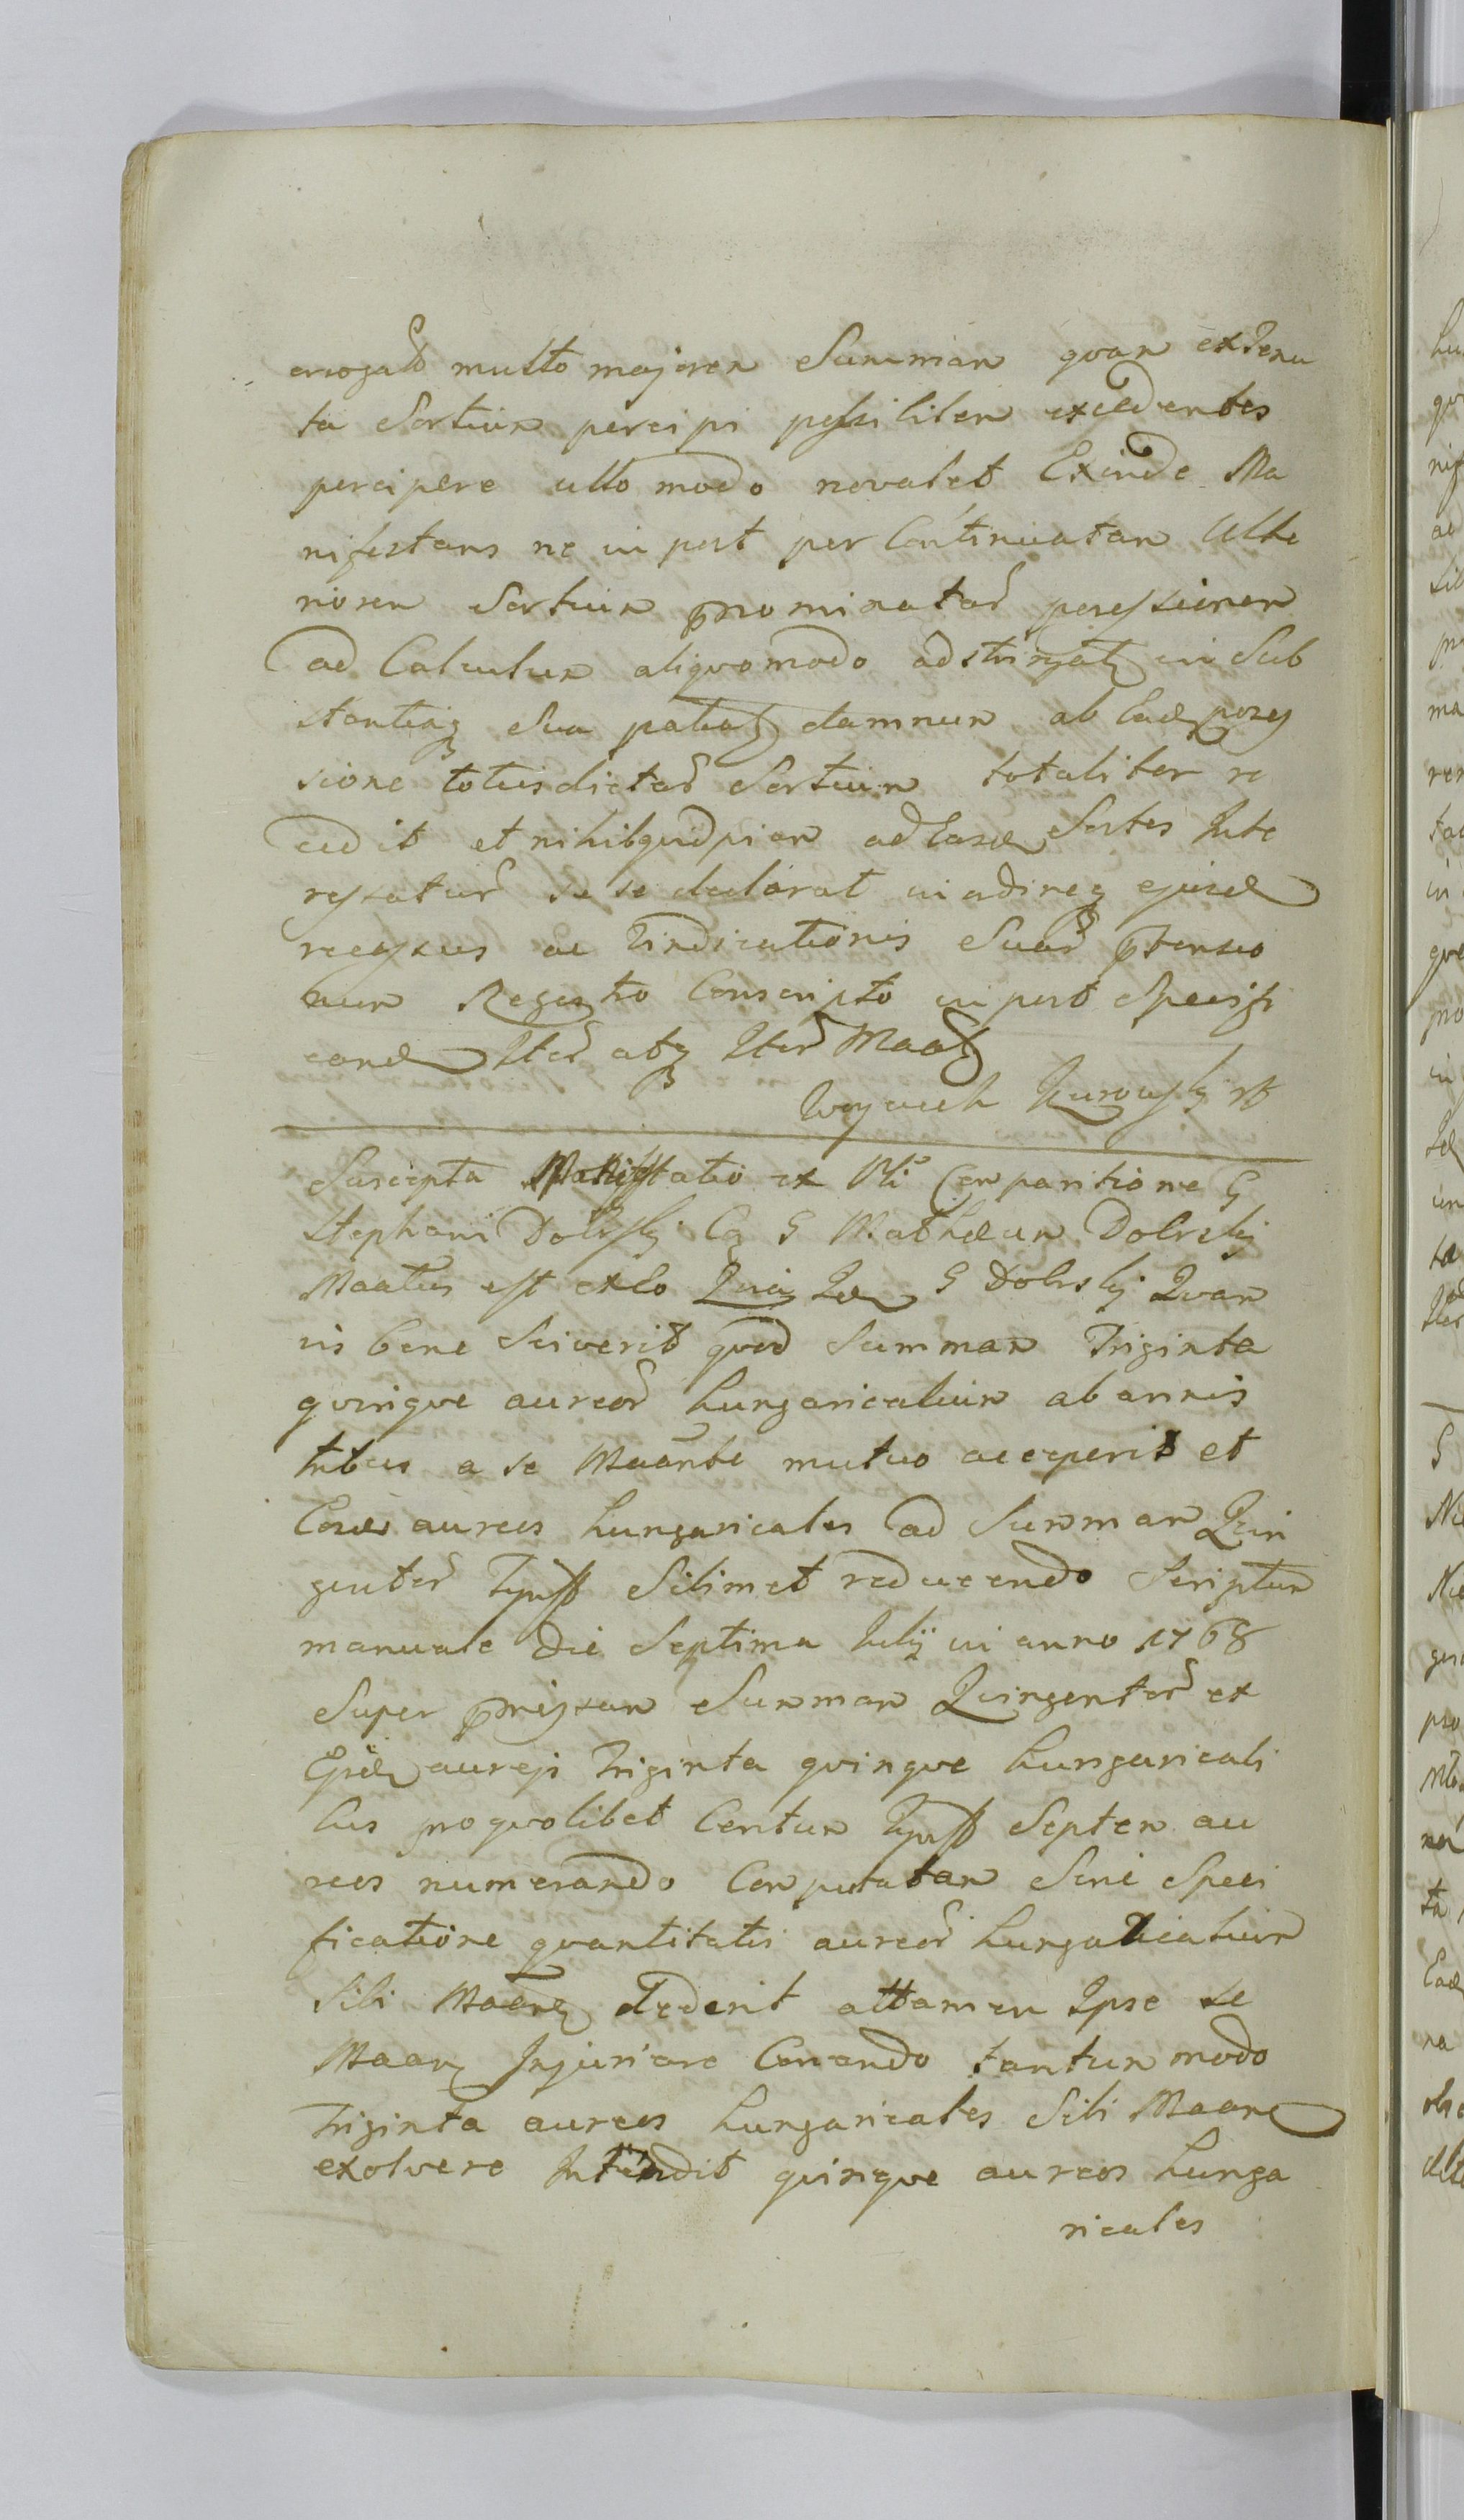 erogato multo majorem Summam quam ex Tenu
ta Sortium percipi possibilem excedentes
percipere ullo modo nevalet Exinde Ma
nifestans ne in post per Continuatam Ulte
riorem Sortium prominatar possessionem
ad Calculum aliquomodo adstringatz in Sub
stantiaq Sua patiatz damnum ab Ead posses
sione totius dictar Sortium totaliter re
cedit et nihil quidpiam ad Easd Sortes Inte
ressatur se se declarat in ordineq ejusd
recessus ac Vindicationis Suar ptensio
num Regestro Conscripto in post Specifi
cand Iter atq Iter Maatz
Woyciech Kurowski mp
Suscepta Manifstatio ex Pli Comparitione G
Stephani Dolski Cq G Mathæum Dolski
Maatus est exeo Quia Id G Dolski Quam
vis bene Sciverit quod Summam Triginta
quinque aureor hungaricalium ab annis
tribus a se Maante mutuo acceperit et
Eosd aureos hungaricales ad Summam Quin
gentor Typff Silimet reducendo Scriptum
manuale Die Septima Julij in anno 1768
Super prmissam Summam Quingentor ex
Eisd aureis Triginta quinque hungaricali
bus pro quolibet Centum Typff Septem au
reos numerando Computatam Sine Speci
ficatione quantitatis aureor hungaricalium
Sibi Maanti dederit attamen Ipse se
Maan Injuriare Conando tantum modo
Triginta aureos hungaricales Sibi Maan
exolvere Intendit quinque aureos hunga
ricales